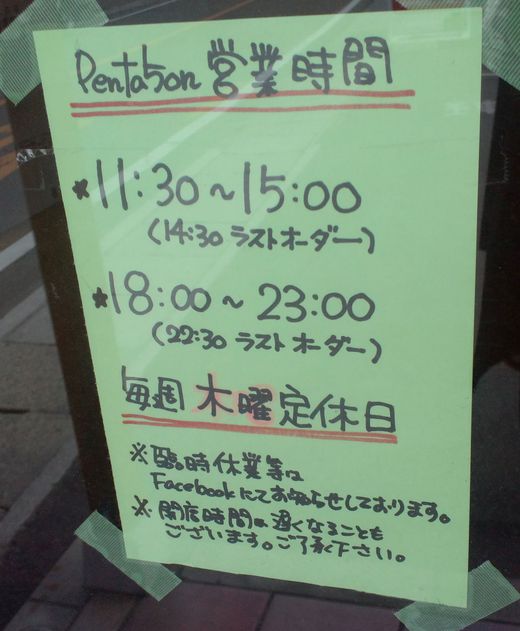 Penta5on 営業時間
★11:30～15:00
(14:30 ラストオーダー)
★18:00～23:00
(22:30 ラストオーダー)
毎週 木曜定休日
※臨時休業等は
Facebookにてお知らせしております。
※開店時間は遅くなることも
ございます。ご了承下さい。